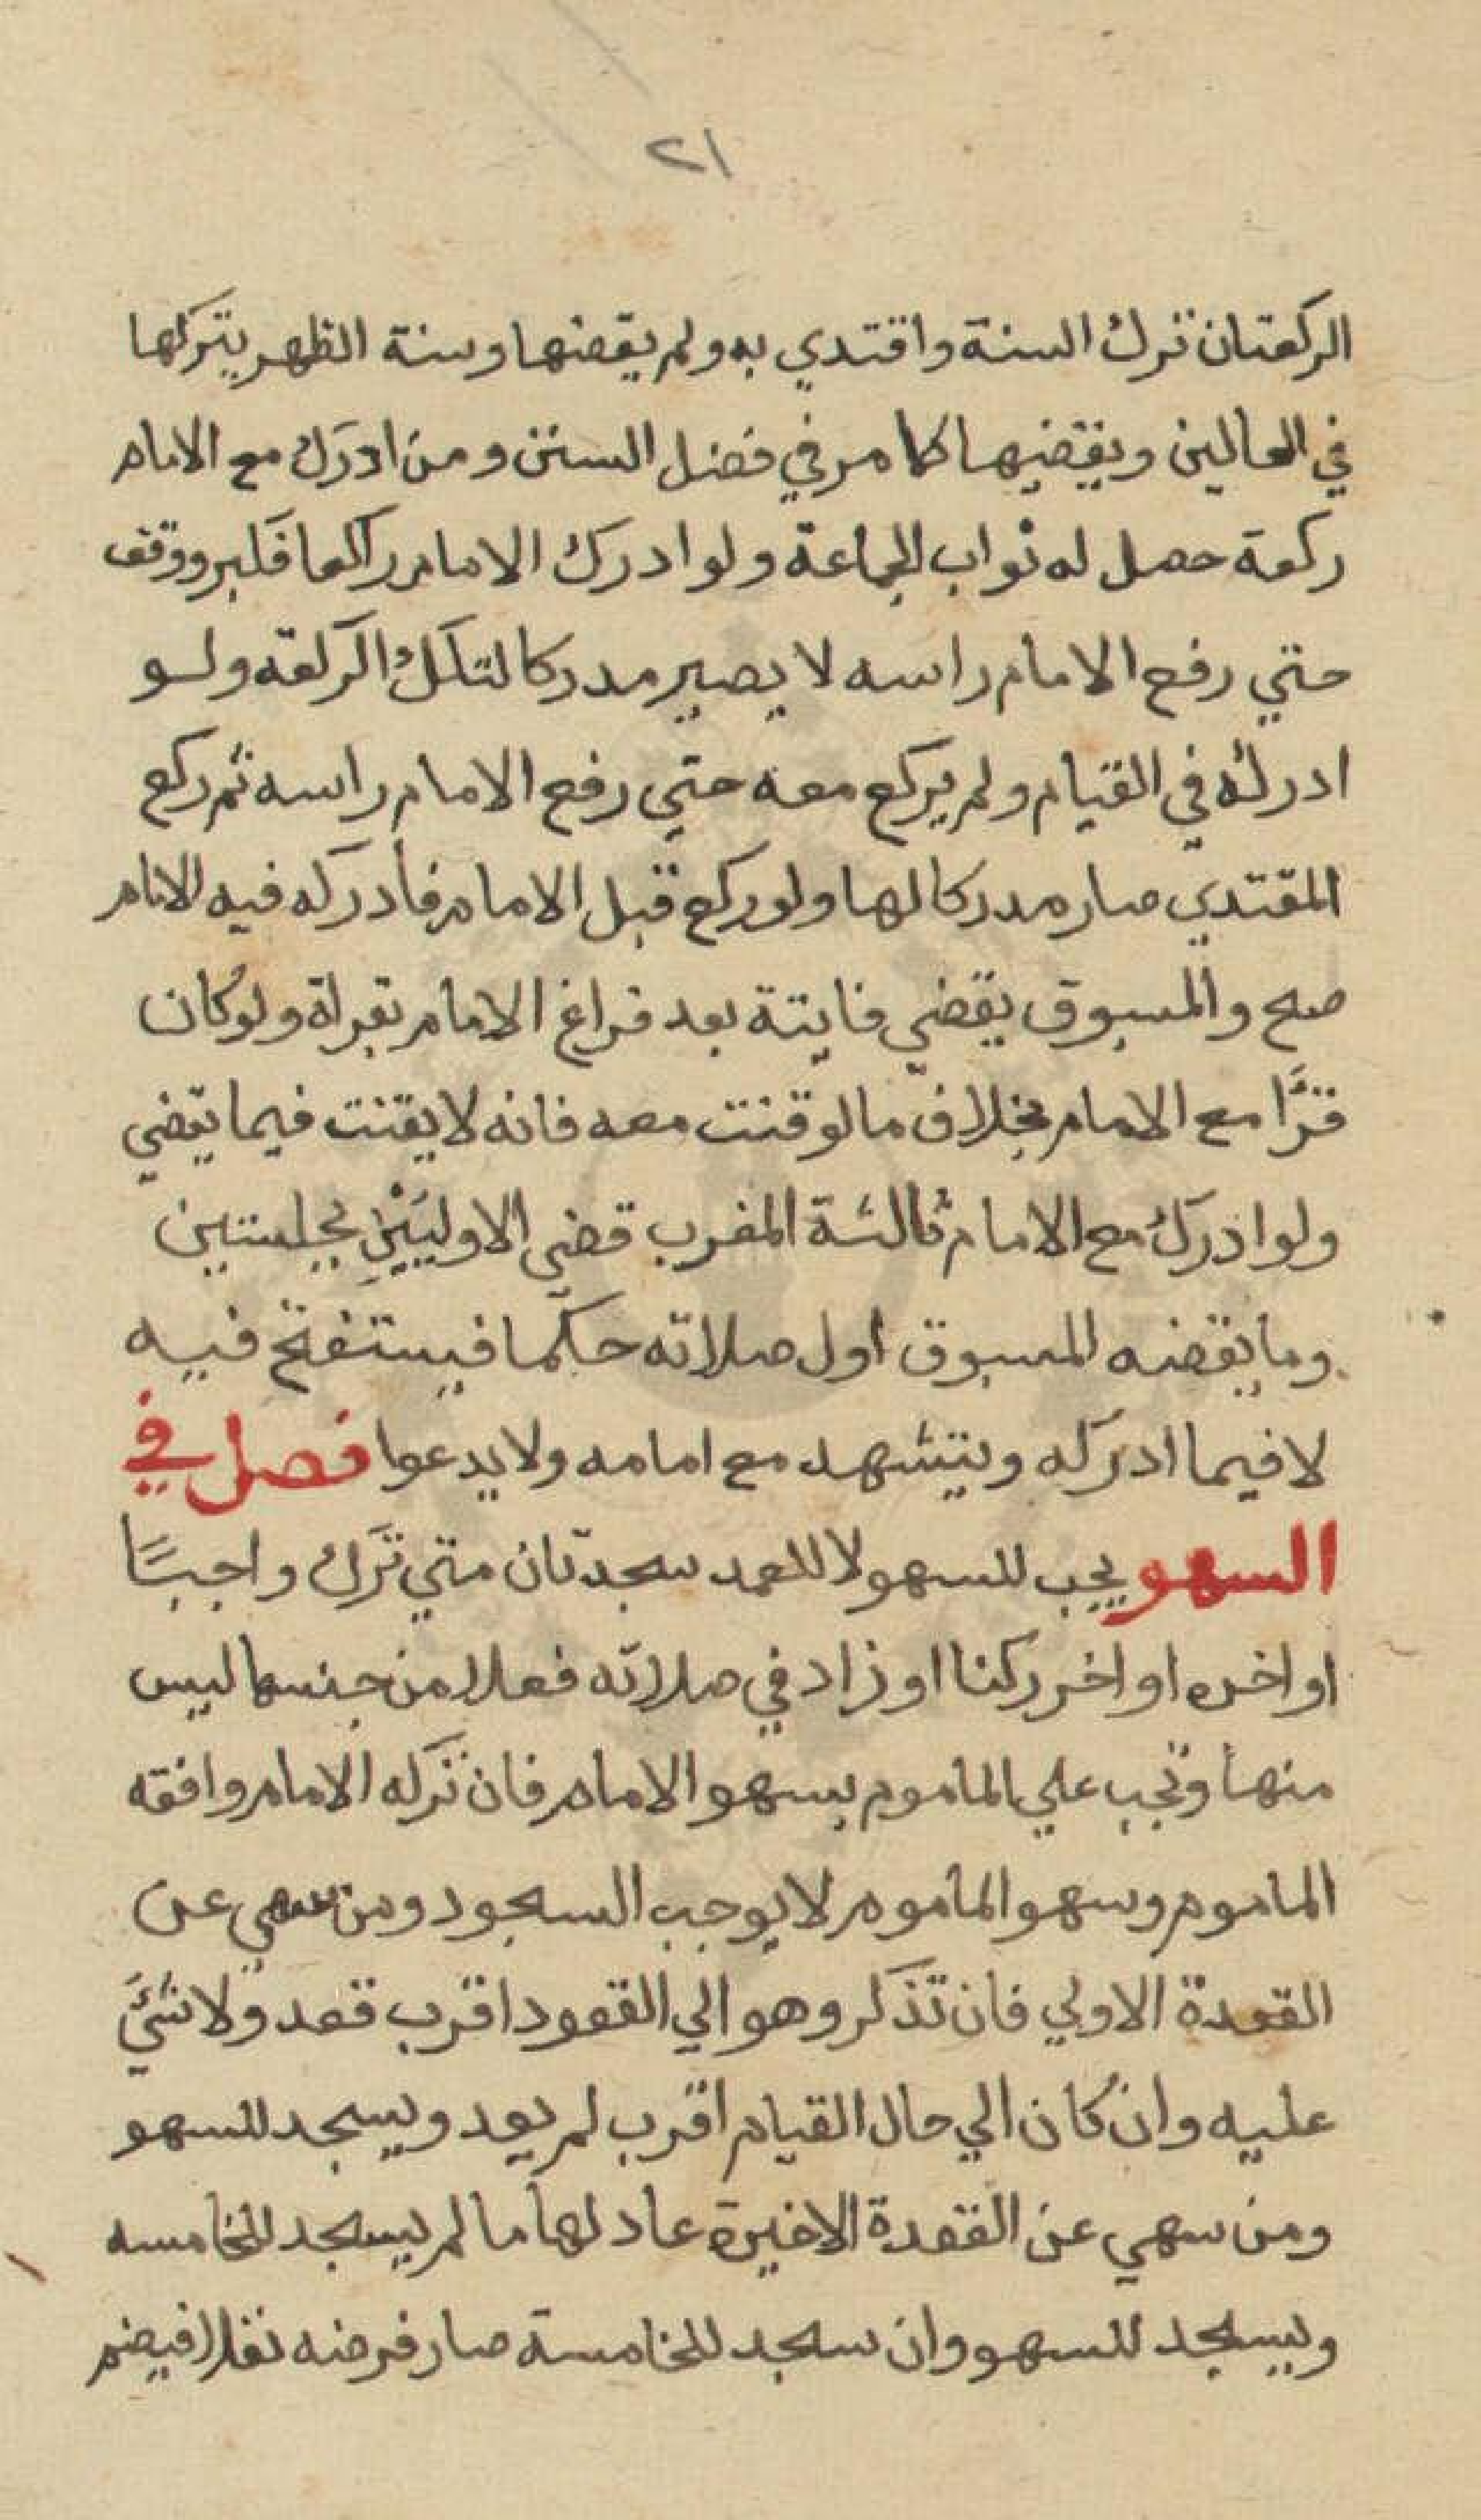 ٢١
الركعتان ترك السنة واقتدي به ولم يقضها وسنة الظهر يتركها
في الحالين ويقضيها كما مر في فضل السنن ومن ادرك مع الامام
ركعة حصل له ثواب الجماعة ولو ادرك الامام راكعا فكبر ووقف
حتي رفع الامام راسه لا يصير مدركا لتلك الركعة ولو
ادركه في القيام ولم يركع معه حتي رفع الامام راسه ثم ركع
المقتدي صار مدركا لها ولو ركع قبل الامام فأدركه فيه الامام
صح والمسبوق يقضي فايتة بعد فراغ الامام بقراة ولو كان
قرَّا مع الامام بخلاف ما لو قنت معه فانه لا يقنت فيما يقضي
ولو ادرك مع الامام ثالثة المغرب قضي الاوليَيْنِ بجلستين
وما يقضه المسبوق اول صلاته حكما فيستفتح فيه
لا فيما ادركه ويتشهد مع امامه ولا يدعوا فصل في
السهو يجب للسهو لا للعمد سجدتان متي ترك واجبًا
او اخره او اخر ركنا او زاد في صلاته فعلا من جنسها ليس
منها وتجب علي الماموم بسهو الامام فان تركه الامام وافقه
الماموم وسهو الماموم لا يوجب السجود ومن سهي عن
القعدة الاولي فان تذكر وهو الي القعود اقرب قعد ولا شئَ
عليه وان كان الي حال القيام اقرب لم يعد ويسجد للسهو
ومن سهي عن القعدة الاخيرة عاد لها ما لم يسجد للخامسه
ويسجد للسهو وان سجد للخامسة صار فرضه نفلا فيضم